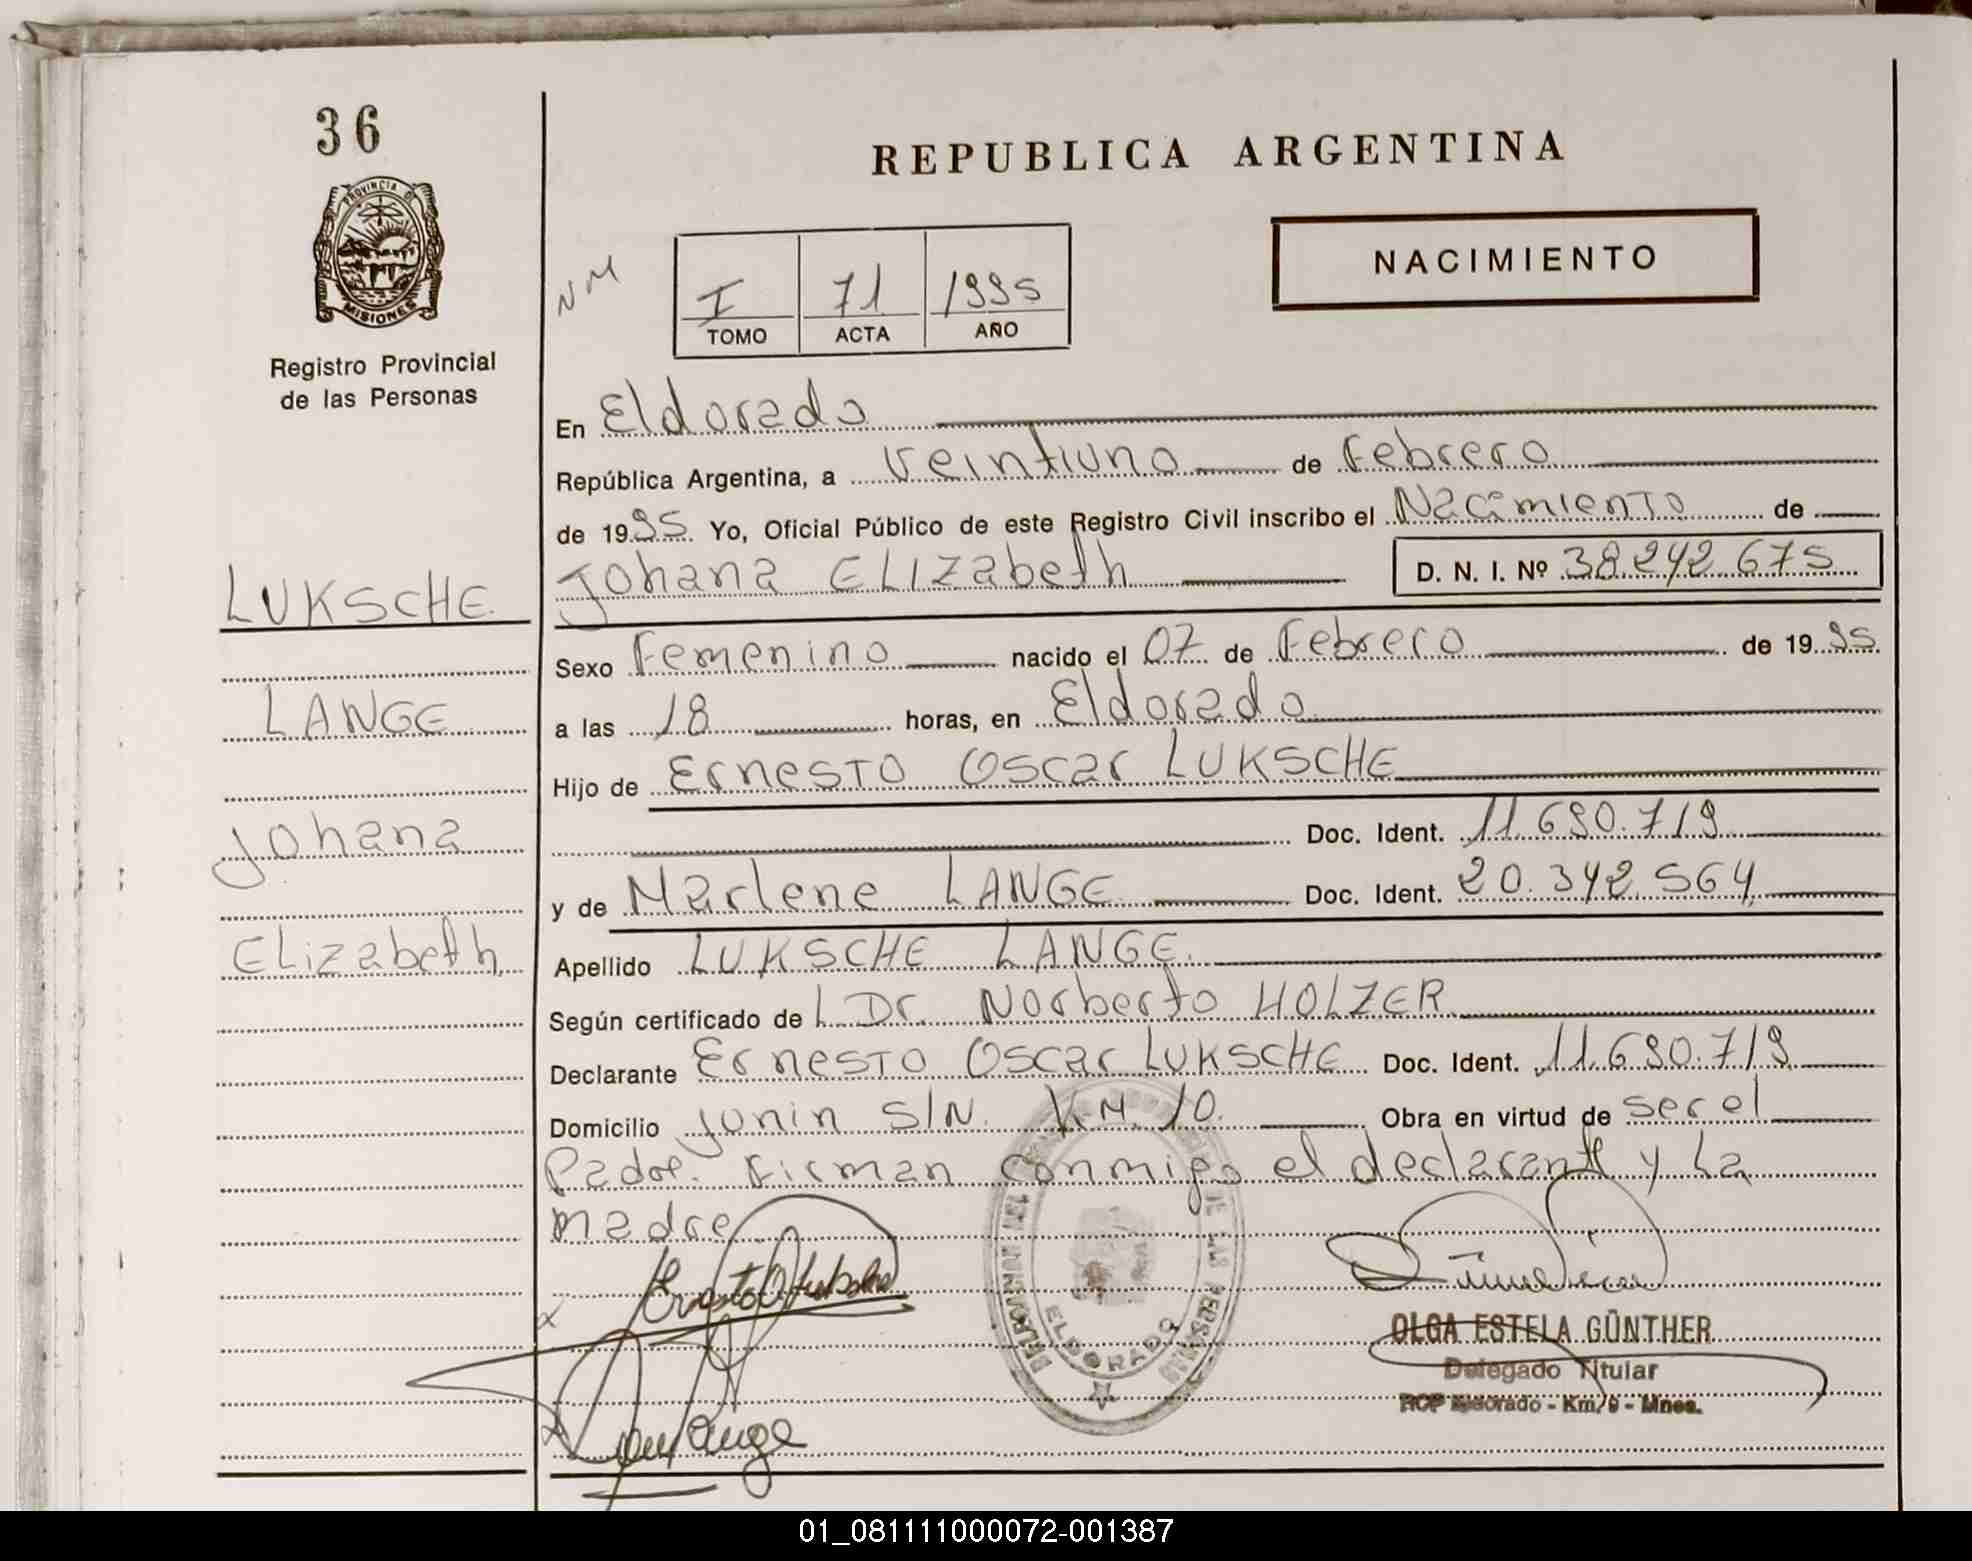 36
PROVINCIA DE
MISIONES
Registro Provincial
de las Personas
LUKSCHE
LANGE
Johana
Elizabeth
REPUBLICA ARGENTINA
NM
I 71 1995
TOMO ACTA AÑO
NACIMIENTO
En Eldorado
República Argentina, a Veintiuno de Febrero
de 1995 Yo, Oficial Público de este Registro Civil inscribo el Nacimiento de
Johana ELIZabeth D. N. I. Nº 38.242.675
Sexo Femenino nacido el 07 de Febrero de 1995.
a las 18 horas, en Eldorado
Hijo de Ernesto Oscar LUKSCHE
Doc. Ident. 11.690.719
y de Marlene LANGE Doc. Ident. 20.342.564
Apellido LUKSCHE LANGE.
Según certificado de L Dr. Norberto HOLZER
Declarante Ernesto Oscar LUKSCHE Doc. Ident. 11.690.719
Domicilio Junin S/N. KM. 10. Obra en virtud de ser el
Padre. Firman conmigo el declarante y La
madre
ELDORADO
OLGA ESTELA GÜNTHER
Delegado Titular
RCP Eldorado - Km/9 - Mnes.
01_081111000072-001387